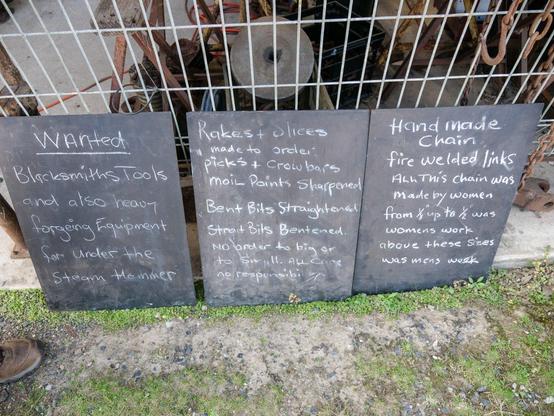 Wanted
Blacksmiths Tools
and also heavy
forgeing Equipment
for under the
Steam Hammer
Rakes + Slices
made to order
picks + Crowbars
Moil Points Sharpened
Bent Bits Straightened
Strait Bits Bentened.
No order to big or
to Small. All Care
no responsibi
Hand made
Chain
fire welded links
All This chain was
Made by women
from 1/8 up to 1/2 was
womens work
above these Sizes
was mens work